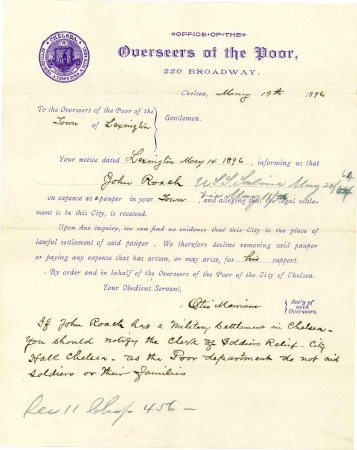 CHELSEA
OFFICE OF THE
Overseers of the Poor,
220 BROADWAY.
Chelsea, May 19th 1896
To the Overseers of the Poor of the
Town of Lexington
Gentlemen.
Your notice dated Lexington May 14 1896, informing us that
John Roach
on expense as a pauper in your Town and alleging that the legal settle-
ment is in this City, is received.
Upon due inquiry, we can find no evidence that this City is the place of
lawful settlement of said pauper. We therefore decline removing said pauper
or paying any expense that has arisen, or may arise, for his support.
By order and in behalf of the Overseers of the Poor of the City of Chelsea.
Your Obedient Servant,
Otis Merriam
Sec'y of
said
Overseers.
If John Roach has a Military Settlement in Chelsea-
You should notify the Clerk of Soldiers Relief - City
Hall Chelsea - as the Poor department do not aid
Soldiers or their Families
Rec 11 Chap 456 -